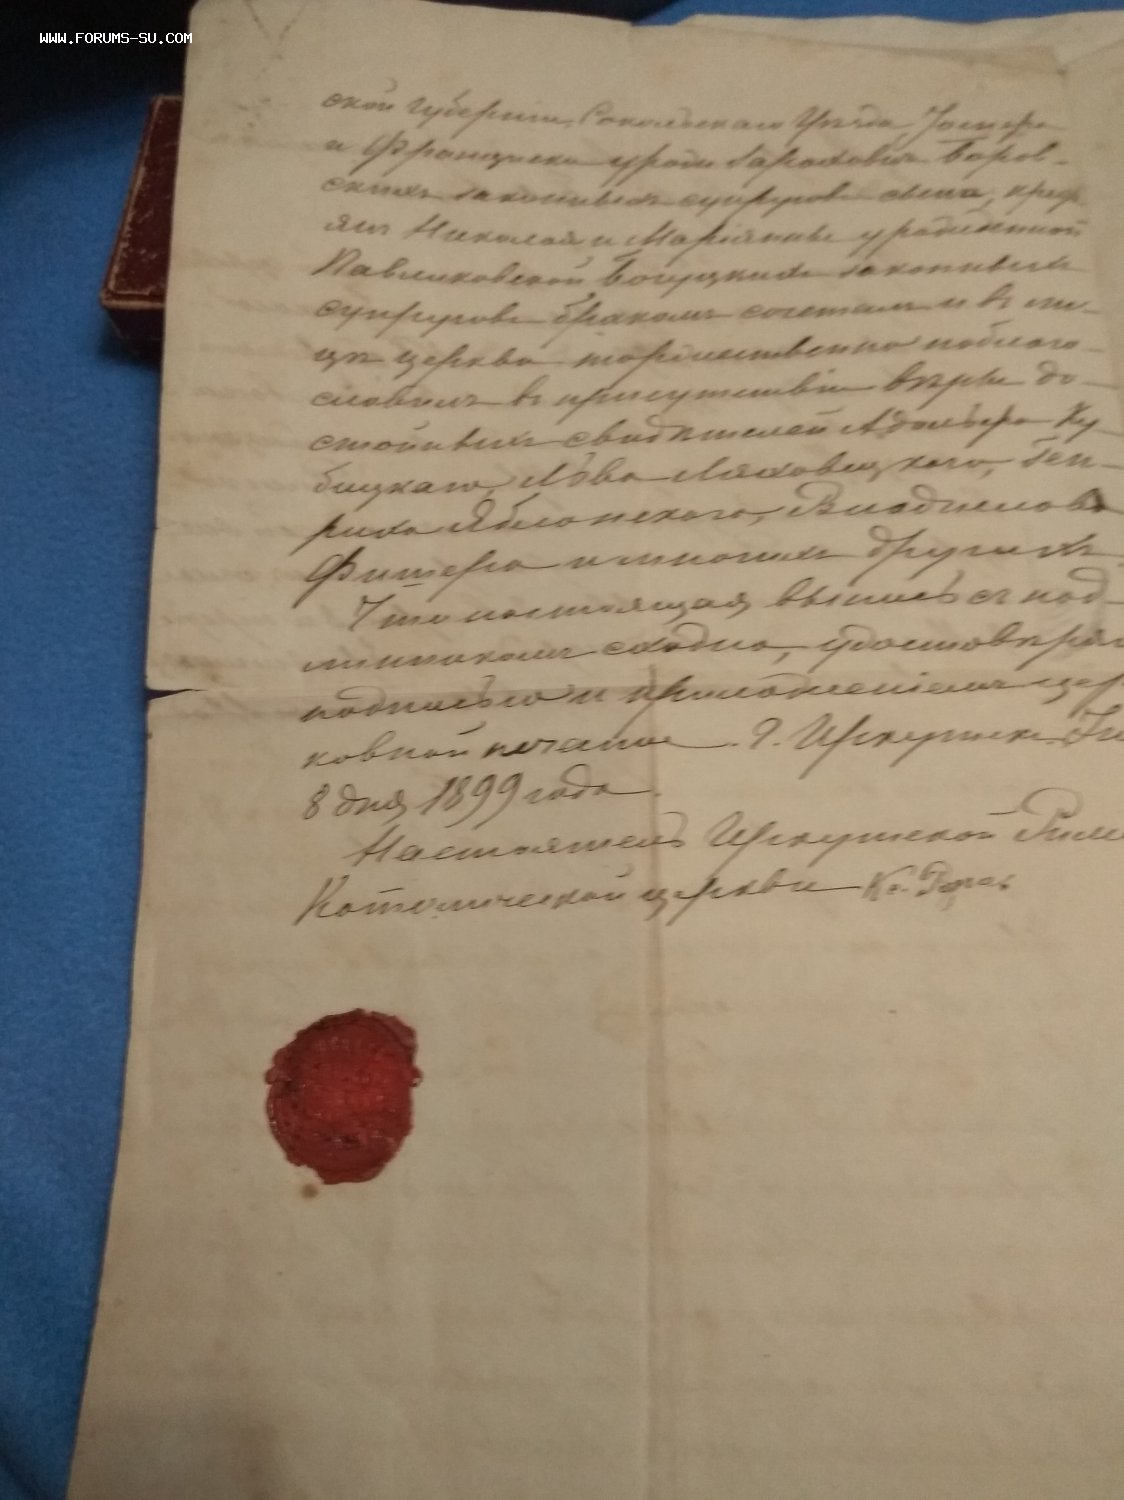 WWW.FORUMS-SU.COM
ской губернiи, Сокольскаго Уѣзда, Iосифа
и Франциски урожд. Боров-
скихъ законныхъ супруговъ сына,
Николая и Марiянны урожденной
Павликовской Богуцкихъ законныхъ
супруговъ бракомъ сочеталъ и въ ли-
цѣ церкви торжественно поблаго-
словилъ въ присутствiи вѣры до-
стойныхъ свидѣтелей Адольфа Ку-
бицкаго, Льва Ляховецкаго, Ген-
риха Яблонскаго, Владислава
Фишера и многихъ другихъ
Что настоящая выпись съ под-
линникомъ сходна, удостовѣряю
подписью и приложенiемъ цер
ковной печати. Г. Иркутскъ
8 дня 1899 года.
Настоятель Иркутской Рим
Католической церкви Кс.